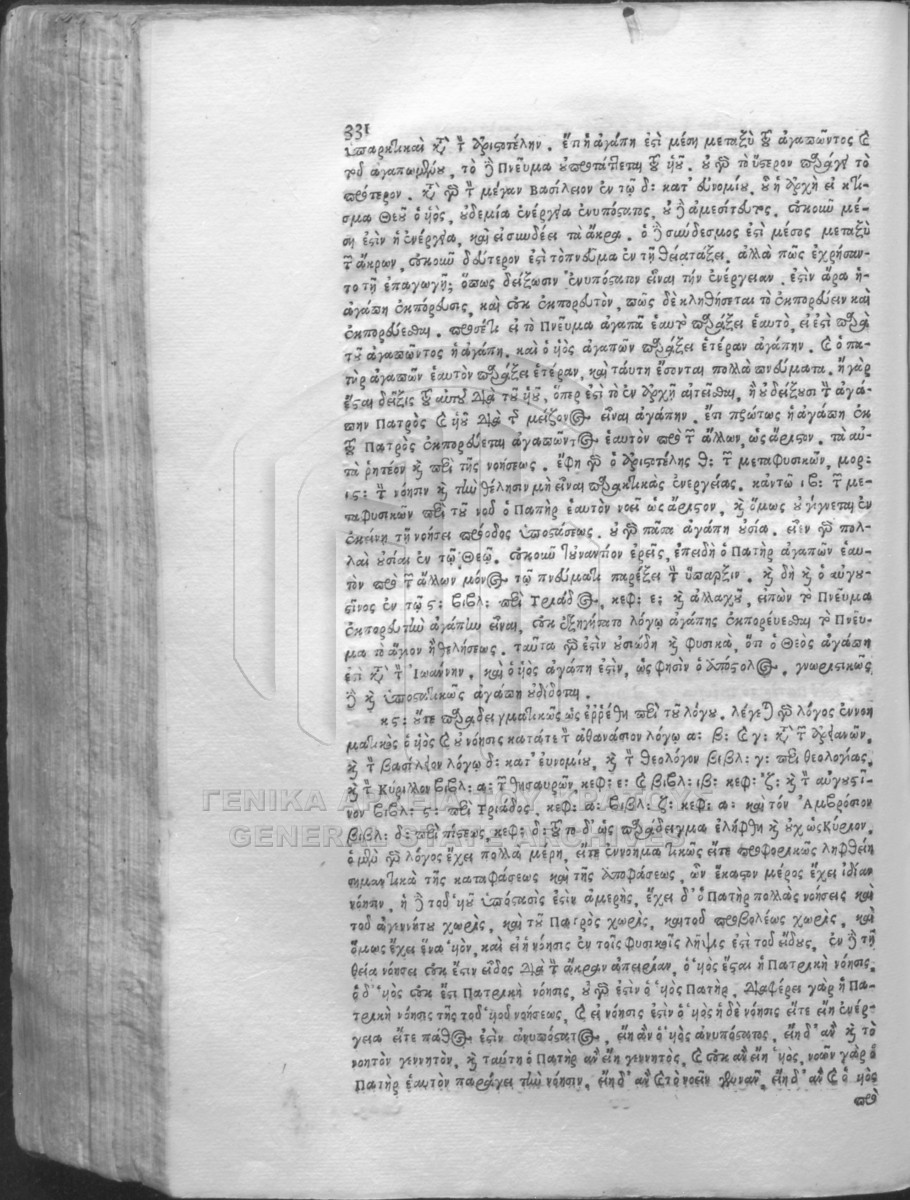 331
ὑπαρκτικαὶ κατὰ τὸν Ἀριστοτέλην. ἔτι ἡ ἀγάπη ἐστὶ μέση μεταξὺ τοῦ ἀγαπῶντος καὶ
τοῦ ἀγαπωμένου, τὸ δὲ Πνεῦμα ὑποτάττεται τοῦ υἱοῦ. οὐ γὰρ τὸ ὕστερον παράγει τὸ
πρότερον. κατὰ γὰρ τὸν μέγαν Βασίλειον ἐν τῷ δ: κατ' εὐνομίου, οὗ ἡ ἀρχὴ εἰ κτί-
σμα Θεοῦ ὁ υἱὸς, οὐδεμία ἐνέργεια ἐνυπόστατος, οὐδὲ ἀμεσίτευτος. οὐκοῦν μέ-
ση ἐστὶν ἡ ἐνέργεια, καὶ εἰ συνδέει τὰ ἄκρα. ὁ δὲ σύνδεσμος ἐστὶ μέσος μεταξὺ
τῶν ἄκρων, οὐκοῦν δεύτερον ἐστὶ τὸ πνεῦμα ἐν τῇ θείᾳ τάξει. ἀλλὰ πῶς ἐχρήσαν-
το τῇ ἐπαγωγῇ; ὅπως δείξωσιν ἐνυπόστατον εἶναι τήν ἐνέργειαν. ἐστὶν ἄρα ἡ
ἀγάπη ἐκπόρευσις, καὶ οὐκ ἐκπορευτὸν, πῶς δὲ κληθήσεται τὸ ἐκπορεύειν καὶ
ἐκπορεύεσθαι. προσέτι εἰ τὸ Πνεῦμα ἀγαπᾷ ἑαυτὸ παράξει ἑαυτὸ, εἰ ἐστὶ παρὰ
τοῦ ἀγαπῶντος ἡ ἀγάπη. καὶ ὁ υἱὸς ἀγαπῶν παράξει ἑτέραν ἀγάπην. καὶ ὁ πα-
τὴρ ἀγαπῶν ἑαυτὸν παράξει ἑτέραν, καὶ ταύτῃ ἔσονται πολλὰ πνεύματα. ἢ γὰρ
ἔσται δεῖξις τοῦ αὐτοῦ διὰ τοῦ υἱοῦ, ὅπερ ἐστὶ τὸ ἐν ἀρχῇ αἰτεῖσθαι, ἢ οὐ δείξουσι τὴν ἀγά-
πην Πατρὸς καὶ υἱοῦ διὰ τοῦ μείζονος εἶναι ἀγάπην. ἔτι πρώτως ἡ ἀγάπη ἐκ
τοῦ Πατρὸς ἐκπορεύεται ἀγαπῶντος ἑαυτὸν πρὸ τῶν ἄλλων, ὡς ἄριστον. τὰ αὐ-
τὰ ῥητέον καὶ περὶ τῆς νοήσεως. ἔφη γὰρ ὁ ἀριστοτέλης θ: τῶν μεταφυσικῶν, μορ:
ις: τὴν νόησιν καὶ τὴν θέλησιν μὴ εἶναι πρακτικὰς ἐνεργείας. κἀν τῷ ιβ: τῶν με-
ταφυσικῶν περὶ τοῦ νοῦ ὁ Πατὴρ ἑαυτὸν νοεῖ ὡς ἄριστον, καὶ ὅμως οὐ γίγνεται ἐν
ἐκείνῃ τῇ νοήσει πρόοδος ὑποστάσεως. οὐ γὰρ πᾶσα ἀγάπη οὐσία. εἶεν γὰρ πολ-
λαὶ οὐσίαι ἐν τῷ Θεῷ. οὐκοῦν τοὐναντίον ἐρεῖς, ἐπειδὴ ὁ Πατὴρ ἀγαπῶν ἑαυ-
τὸν πρὸ τῶν ἄλλων μόνος τῷ πνεύματι παρέξει τὴν ὕπαρξιν. καὶ δὴ καὶ ὁ αὐγου-
στῖνος ἐν τῷ ς: βιβλ: περὶ Τριάδος, κεφ: ε; καὶ ἀλλαχοῦ, εἰπὼν τὸ Πνεῦμα
ἐκπορευτὴν ἀγάπην εἶναι, οὐκ ἐξηγήσατο λόγῳ ἀγάπης ἐκπορέυεσθαι τὸ Πνεῦ-
μα τὸ ἅγιον ἢ θελήσεως. ταῦτα γὰρ ἐστὶν οὐσιώδη καὶ φυσικὰ, ὅτι ὁ Θεὸς ἀγάπη
ἐστὶ κατὰ τὸν Ἰωάννην. καὶ ὁ υἱὸς ἀγάπη ἐστὶν, ὡς φησὶν ὁ ἀπόστολος. γνωριστικῶς
δὲ καὶ ὑποστατικῶς ἀγάπη οὐ δίδοται.
κς: οὔτε παραδειγματικῶς ὡς ἐρρέθη περὶ τοῦ λόγου. λέγεται γὰρ λόγος ἐννοη
ματικὸς ὁ υἱὸς καὶ οὐ νόησις κατά τε τὸν ἀθανάσιον λόγῳ α: β: καὶ γ: κατὰ τῶν ἀρειανῶν.
καὶ τὸν βασίλειον λόγῳ δ: κατ' ἐυνομίου, καὶ τὸν θεολόγον βιβλ: γ: περὶ θεολογίας,
καὶ τὸν Κύριλλον βιβλ: α: τῶν θησαυρῶν, κεφ: ε: καὶ βιβλ: ιβ: κεφ: ζ: καὶ τὸν αὐγουστῖ-
νον βιβλ: ς: περὶ Τριάδος, κεφ: α: βιβλ: ζ: κεφ: α: καὶ τόν Ἀμβρόσιον
βιβλ: δ: περὶ πίστεως, κεφ: δ: τοῦτο δ' ὡς παράδειγμα ἐλήφθη καὶ οὐχ ὡς Κύριον.
ὁ μὲν γὰρ λόγος ἔχει πολλὰ μέρη, εἴτε ἐννοηματικῶς εἴτε προφορικῶς ληφθείη
σημαντικὰ τῆς καταφάσεως καὶ τῆς ἀποφάσεως, ὧν ἕκαστον μέρος ἔχει ἰδίαν
νόησιν, ἡ δὲ τοῦ υἱοῦ ὑπόστασις ἐστὶν ἀμερὴς, ἔχει δ' ὁ Πατὴρ πολλὰς νοήσεις καὶ
τοῦ ἀγεννήτου χωρὶς, καὶ τοῦ Πατρὸς χωρὶς, καὶ τοῦ προβολέως χωρὶς, καὶ
ὅμως ἔχει ἕνα υἱὸν, καὶ εἰ ἡ νόησις ἐν τοῖς φυσικοῖς λῆψις ἐστὶ τοῦ εἴδους, ἐν δὲ τῇ
θείᾳ νοήσει οὐκ ἔστιν εἶδος διὰ τὴν ἄκραν ἀπειρίαν, ὁ υἱὸς ἔσται ἡ Πατρικὴ νόησις.
ὁ δ' υἱὸς οὐκ ἔστι Πατρικὴ νόησις, οὐ γὰρ ἐστὶν ὁ υἱὸς Πατὴρ, διαφέρει γὰρ ἡ Πα-
τρικὴ νόησις τῆς τοῦ υἱοῦ νοήσεως, καὶ εἰ νόησις ἐστὶν ὁ υἱὸς ἡ δὲ νόησις εἴτε εἴη ἐνέρ-
γεια εἴτε πάθος ἐστὶν ἀνυπόστατος, εἴη ἂν ὁ υἱὸς ἀνυπόστατος, εἴη δ' ἂν καὶ τὸ
νοητὸν γεννητὸν, καὶ ταύτῃ ὁ Πατὴρ ἂν εἴη γεννητὸς, καὶ οὐκ ἂν εἴη υἱὸς, νοῶν γὰρ ὁ
Πατὴρ ἑαυτὸν παράγει τὴν νόησιν, εἴη δ' ἂν καὶ τὸ νοεῖν γεννᾶν, εἴη δ' ἂν καὶ ὁ υἱὸς
πρὸ
ΓΕΝΙΚΑ ΑΡΧΕΙΑ ΤΟΥ ΚΡΑΤΟΥΣ
GENERAL STATE ARCHIVES